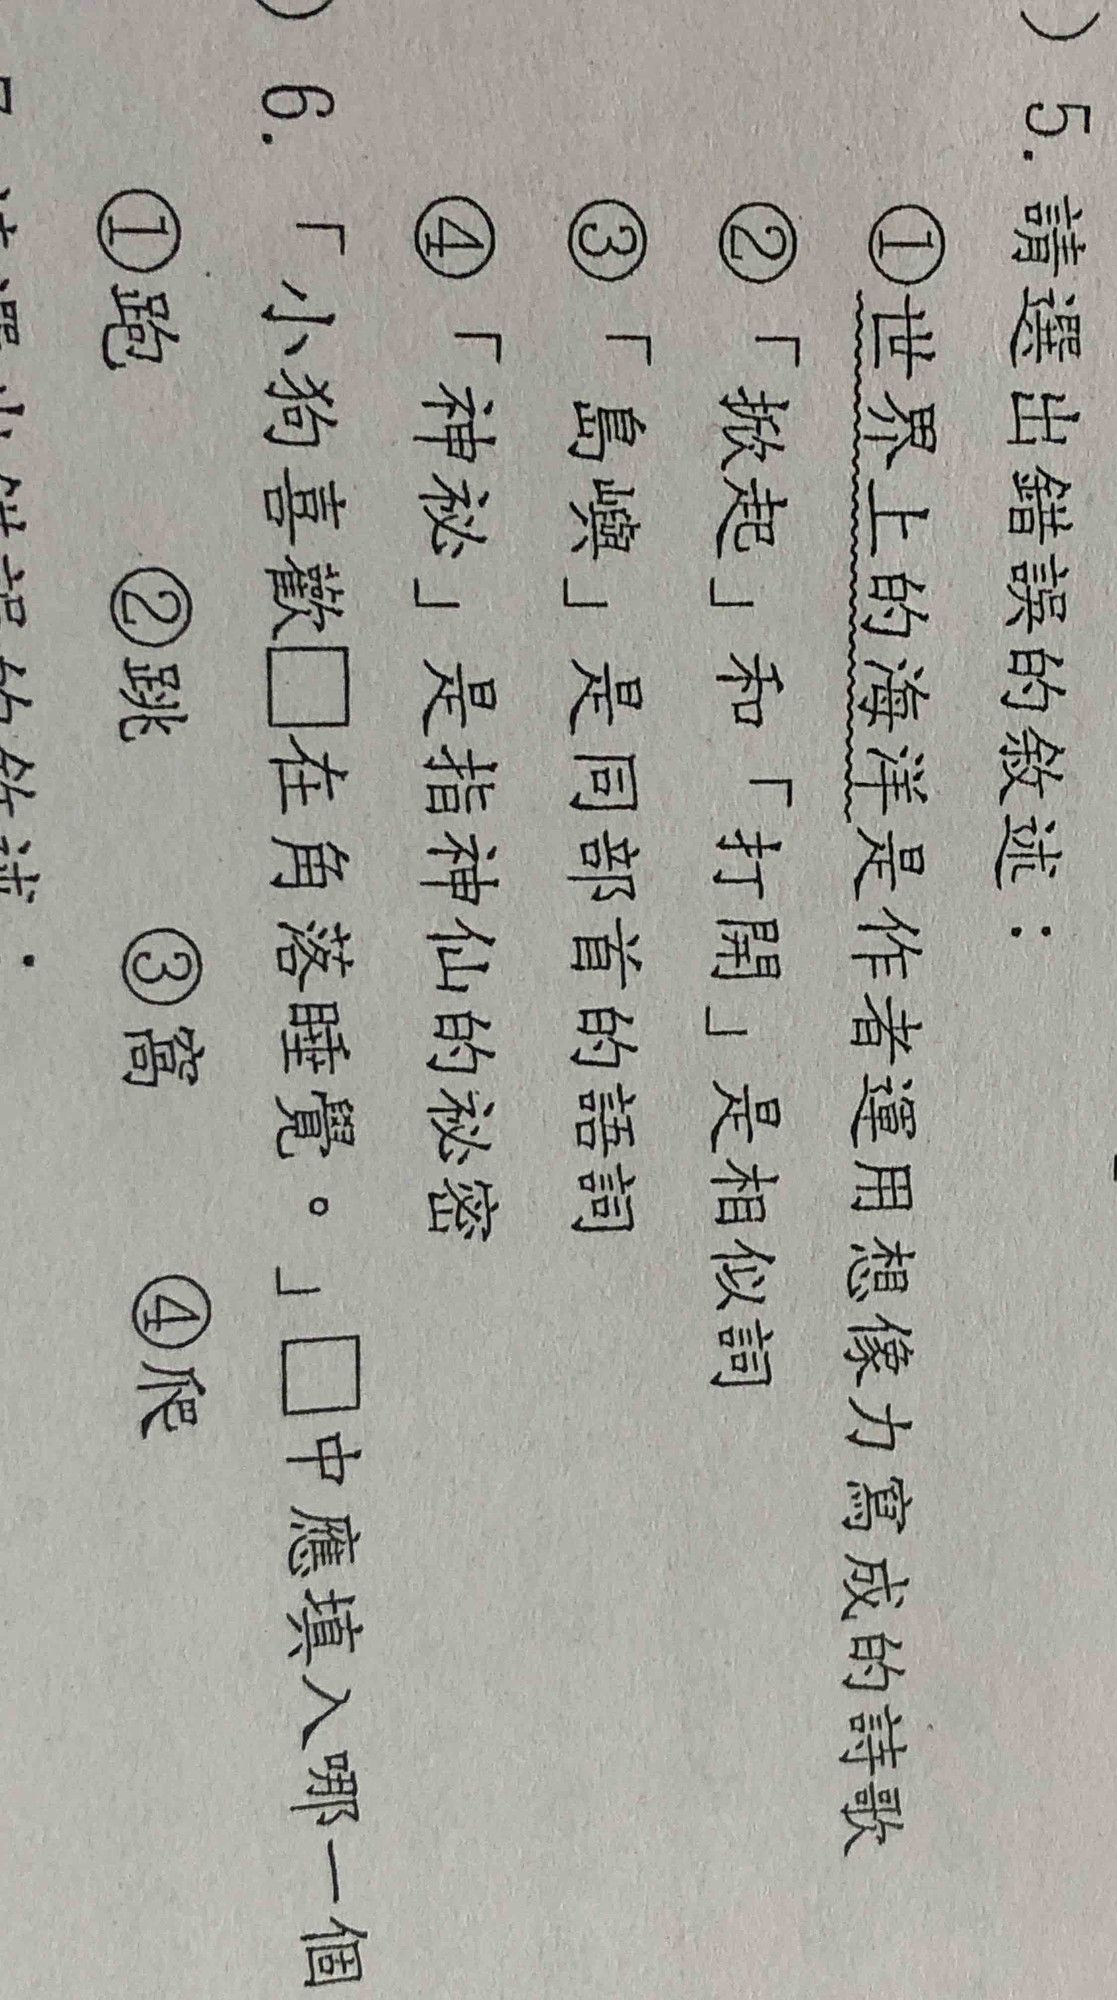 ) 5. 請選出錯誤的敘述：
①世界上的海洋是作者運用想像力寫成的詩歌
②「掀起」和「打開」是相似詞
③「島嶼」是同部首的語詞
④「神祕」是指神仙的祕密
) 6. 「小狗喜歡□在角落睡覺。」□中應填入哪一個
①跑 ②跳 ③窩 ④爬